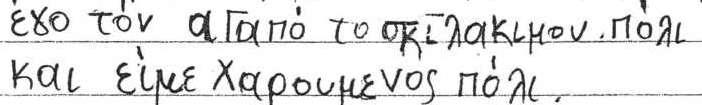 έχο τόν αγαπό το σκίλακιμου. πόλι
και είμε χαρουμενος πόλι.